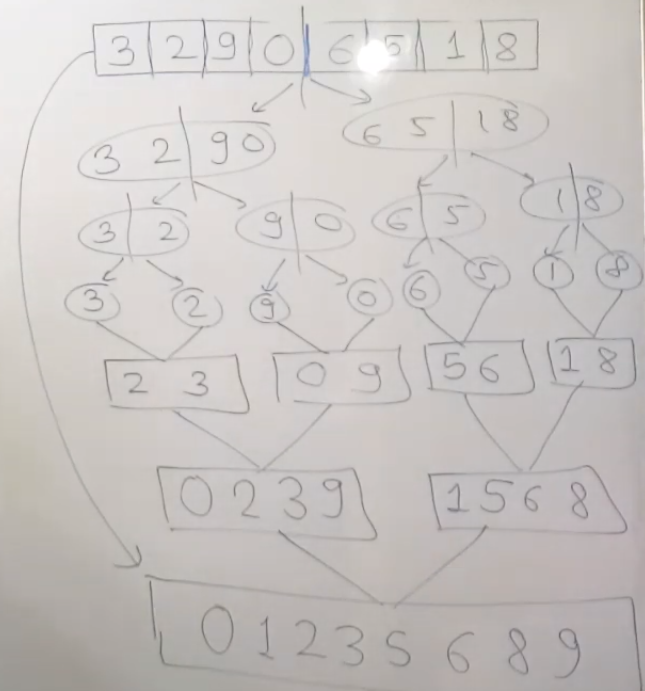 3 2 9 0 6 5 1 8
3 2 9 0 6 5 1 8
3 2 9 0 6 5 1 8
3 2 9 0 6 5 1 8
2 3 0 9 5 6 1 8
0 2 3 9 1 5 6 8
0 1 2 3 5 6 8 9